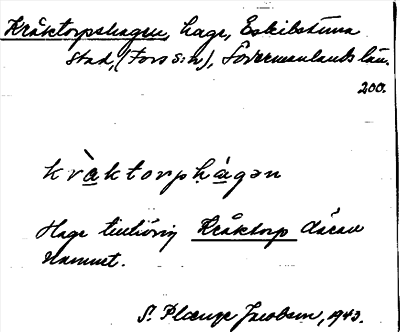 Kråktorpshagen, hage, Eskilstuna
stad, (Fors sn), Södermanlands län.
200.
kràktorphágən
Hage tillhörig Kråktorp därav
namnet.
S. Plænge Jacobson, 1943.